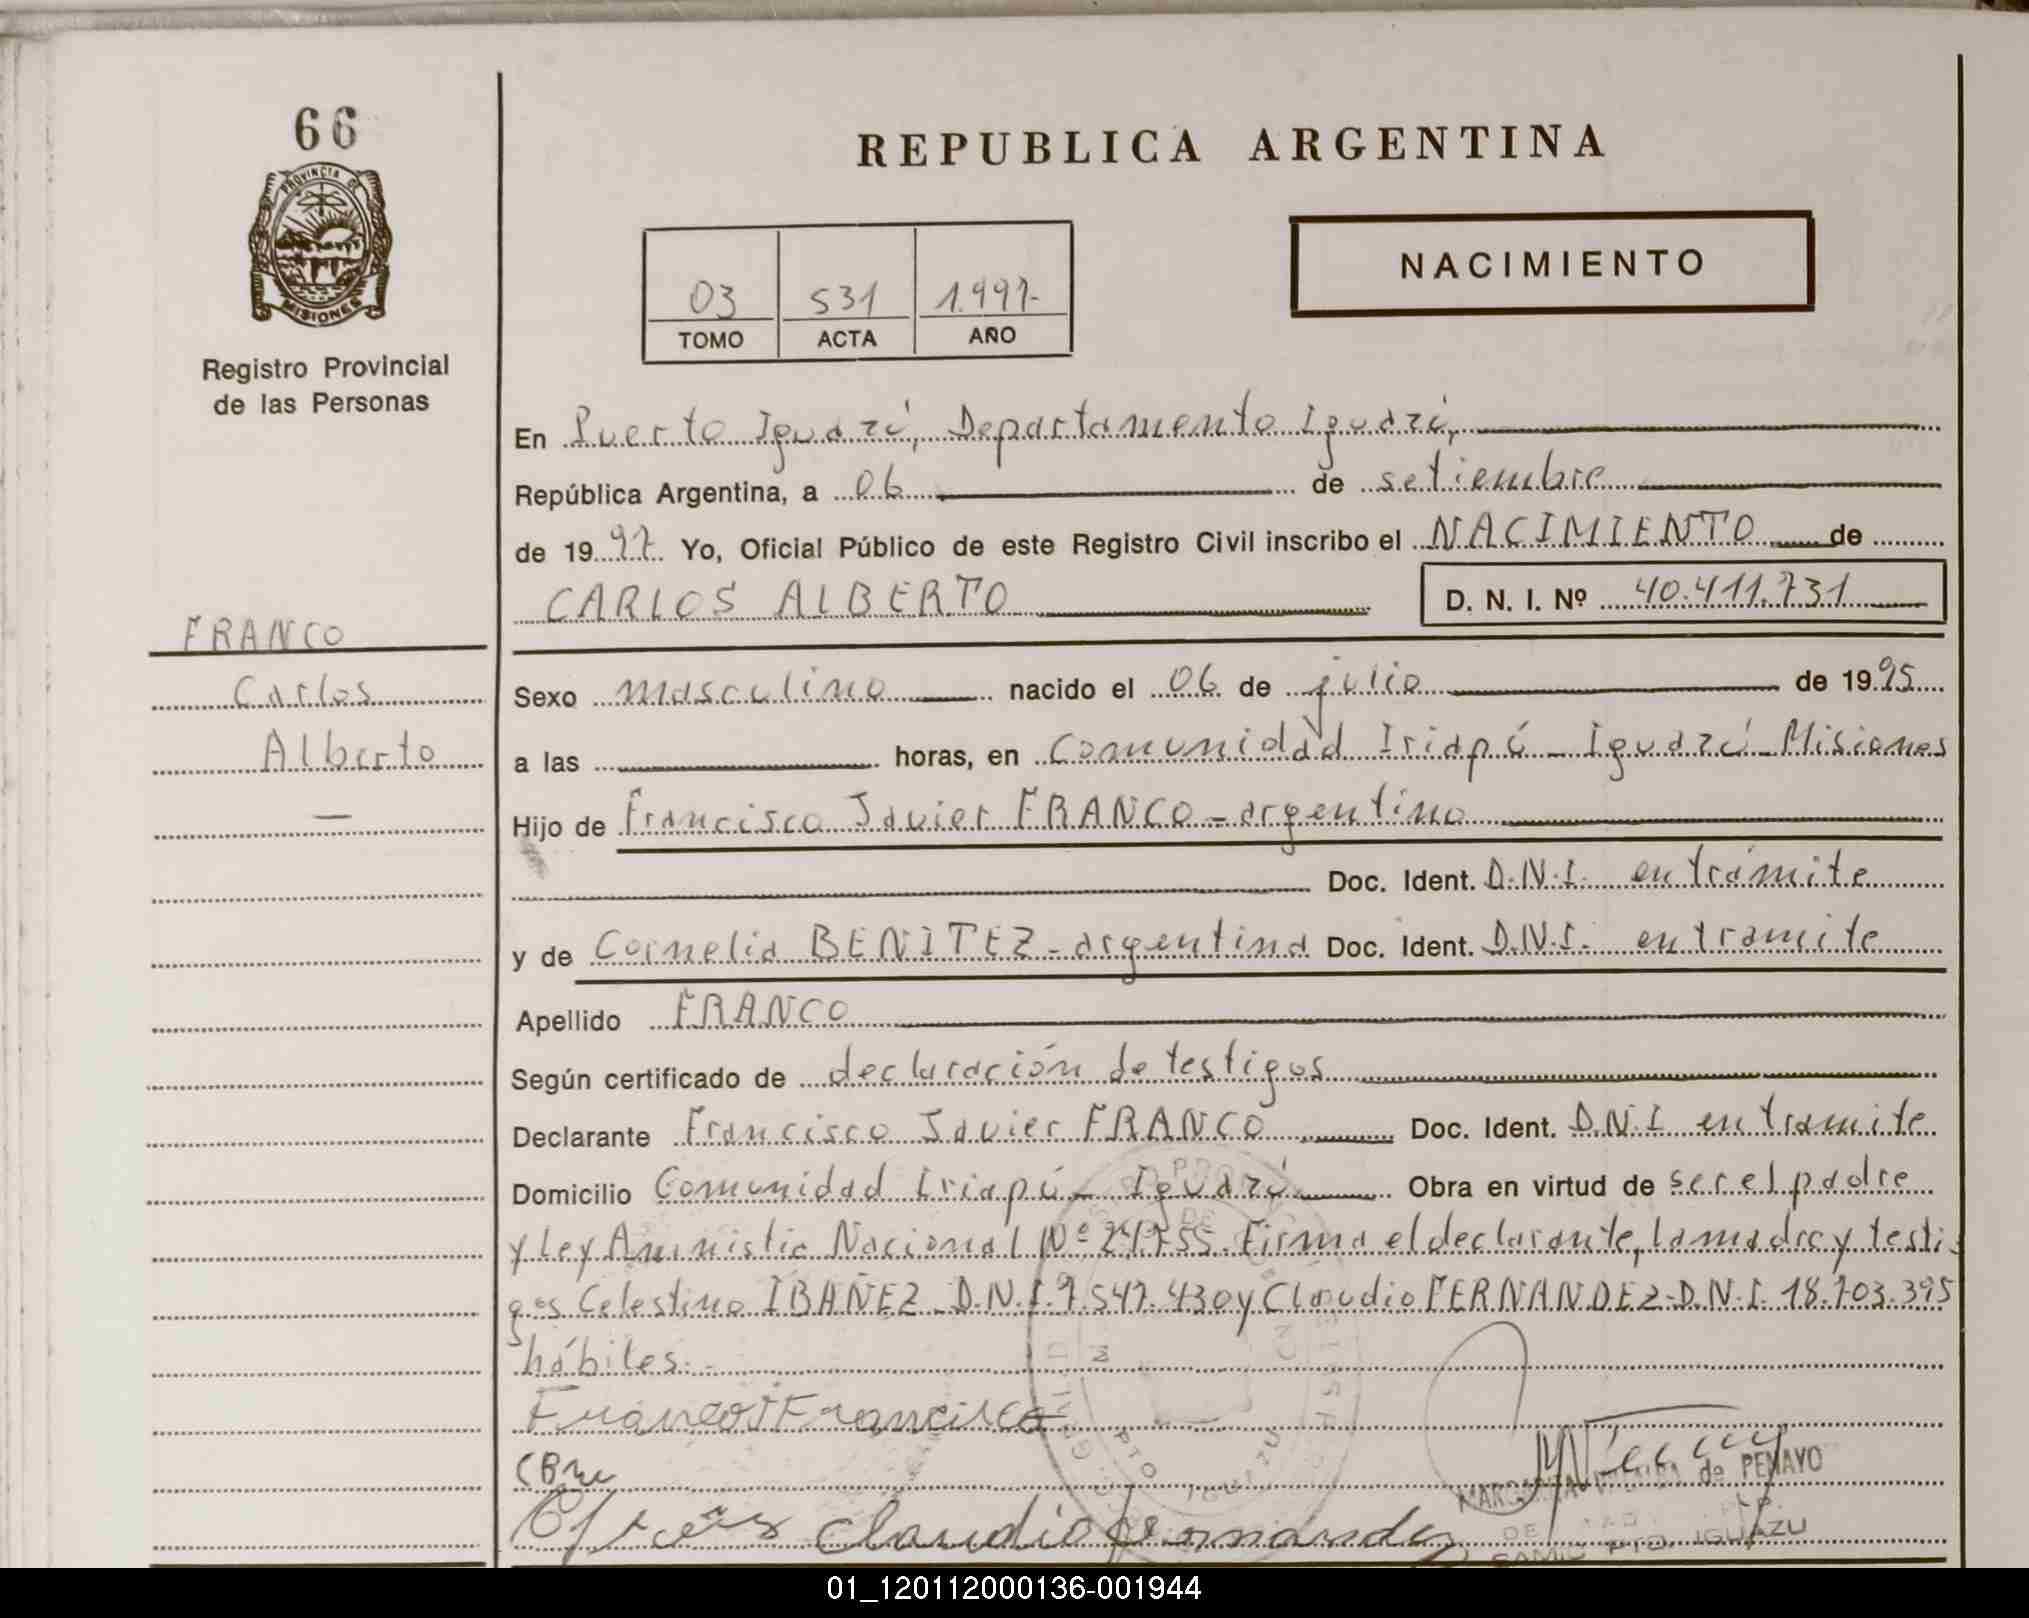 66
PROVINCIA DE
MISIONES
Registro Provincial
de las Personas
REPUBLICA ARGENTINA
NACIMIENTO
03 531 1.997-
TOMO ACTA AÑO
En Puerto Iguazú, Departamento Iguazú,
República Argentina, a 06 de setiembre
de 1997 Yo, Oficial Público de este Registro Civil inscribo el NACIMIENTO de
CARLOS ALBERTO D. N. I. Nº 40.411.731
FRANCO
Carlos
Alberto
—
Sexo masculino nacido el 06 de julio de 1995
a las horas, en Comunidad Iriapú - Iguazú - Misiones
Hijo de Francisco Javier FRANCO - argentino
Doc. Ident. D.N.I. en trámite
y de Cornelia BENITEZ - argentina Doc. Ident. D.N.I. en tramite
Apellido FRANCO
Según certificado de declaración de testigos
Declarante Francisco Javier FRANCO Doc. Ident. D.N.I en tramite
Domicilio Comunidad Iriapú - Iguazú Obra en virtud de ser el padre
y Ley Amnistia Nacional Nº 24.755. Firma el declarante, la madre y testi
gos Celestino IBAÑEZ - D.N.I. 7.547.430 y Claudio FERNANDEZ - D.N.I. 18.703.395
hábiles.-
Franco J Francisco
Claudio fernandez
de PENAYO
PTO. IGUAZU
01_120112000136-001944